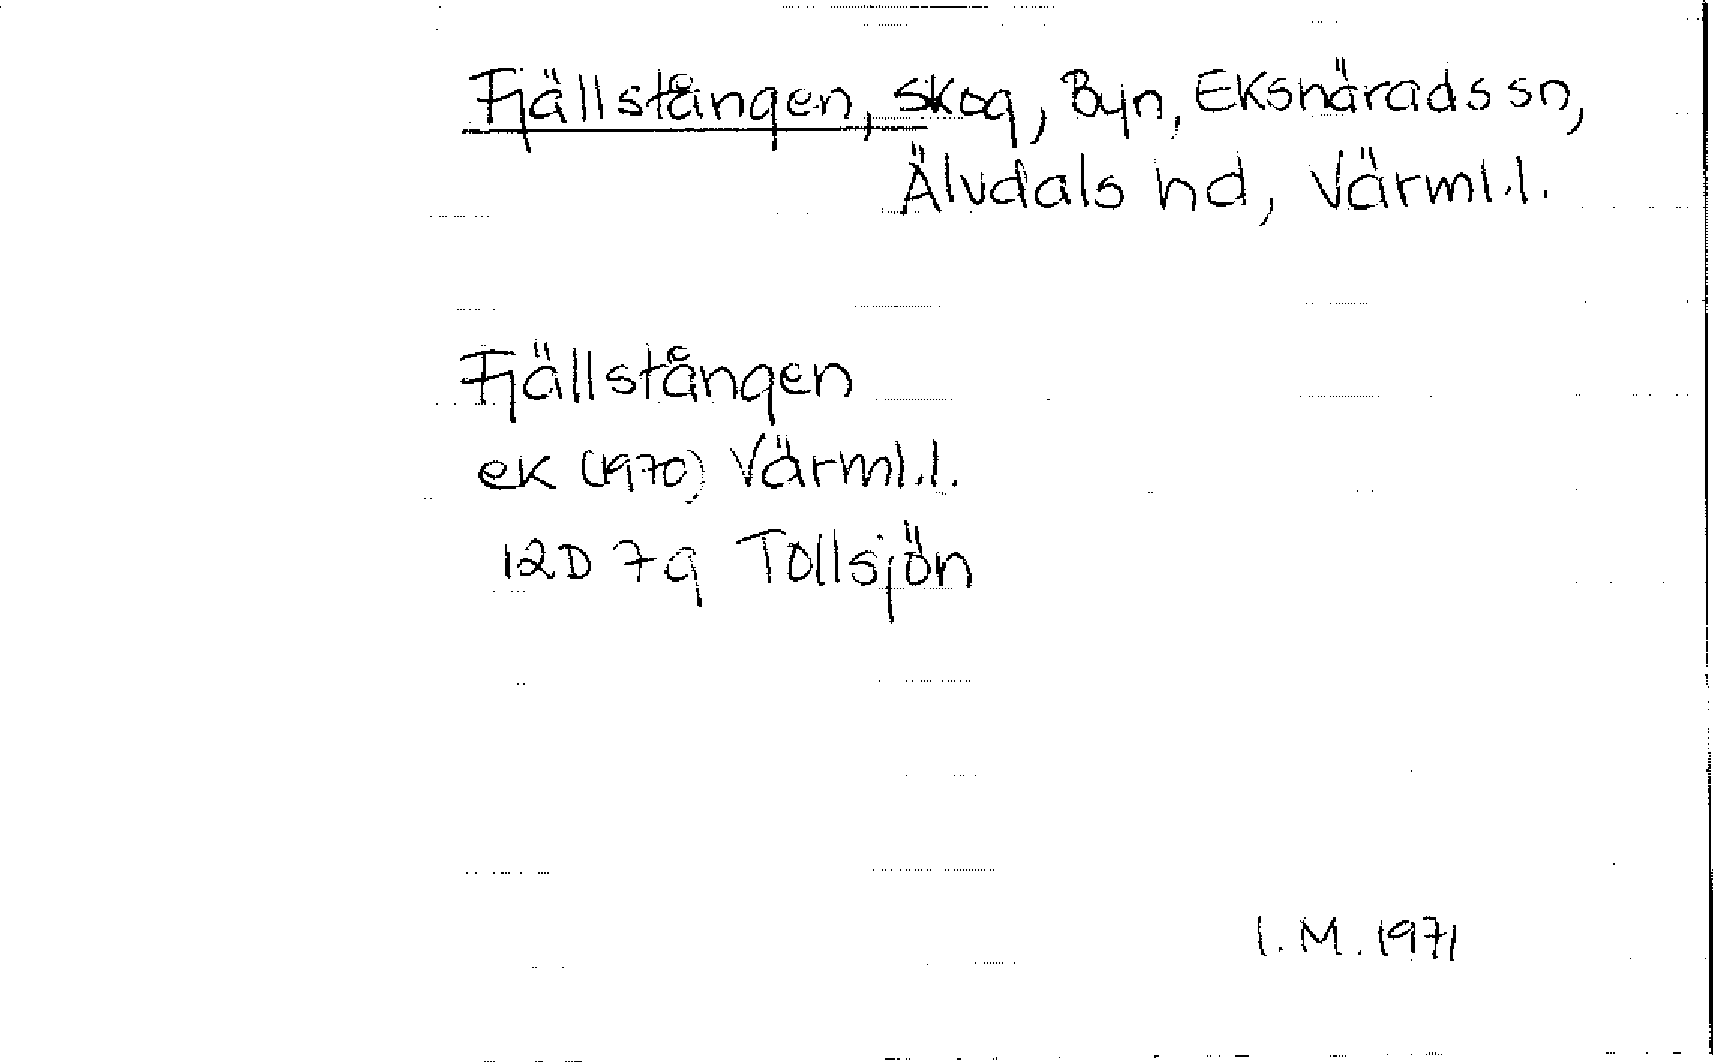 Fjällstången, skog, Byn, Ekshärads sn,
Älvdals hd, Värml.l.
Fjällstången
ek (1970) Värml.l.
12D 7g Tollsjön
I.M. 1971